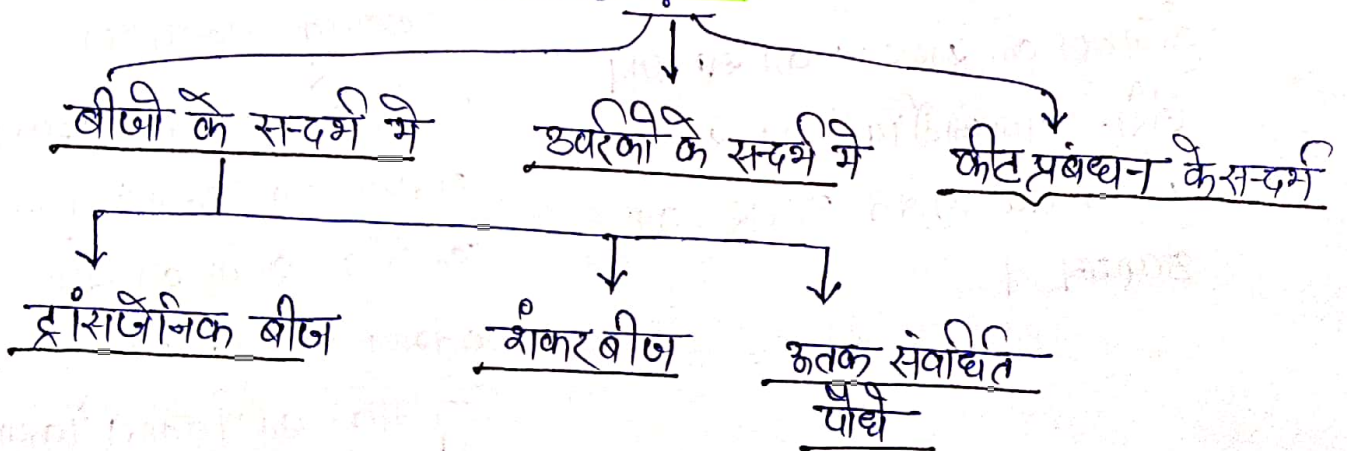 बीजो के सन्दर्भ मे
उर्वरको के सन्दर्भ मे
कीट प्रबंधन के सन्दर्भ
ट्रांसजेनिक बीज
शंकर बीज
ऊतक संवर्धित
पौधे